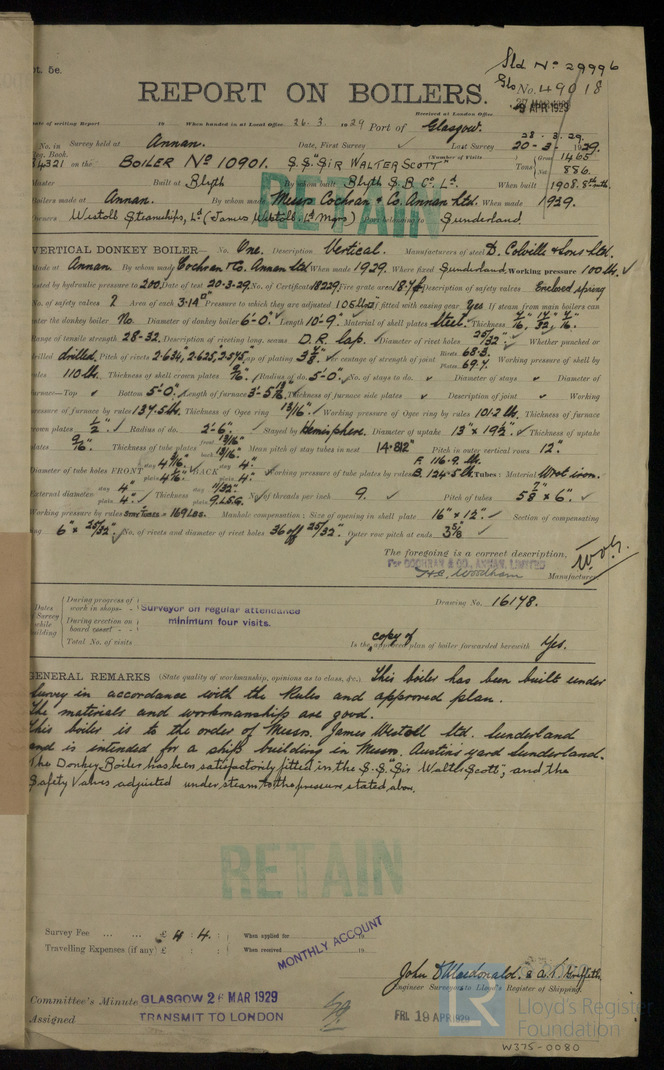 pt. 5e.
Sld No 29996
Gls No. 49018
REPORT ON BOILERS.
19 APR 1929
Received at London Office
Date of writing Report 19 When handed in at Local Office 26.3.1929 Port of Glasgow.
No. in Survey held at Annan. Date, First Survey Last Survey 28-3-29. 20-3-1929.
Reg. Book. (Number of Visits Gross 1465
4321 on the BOILER No 10901. S.S. "SIR WALTER SCOTT" Tons Net 886.
Master Built at Blyth By whom built Blyth S.B. Co. Ld. When built 1908. 8th mth.
Boilers made at Annan. By whom made Messrs Cochran & Co. Annan Ltd. When made 1929.
Owners Westoll Steamships, Ld (James Westoll Ld Mgrs) Port belonging to Sunderland.
RETAIN
VERTICAL DONKEY BOILER— No. One. Description Vertical. Manufacturers of steel D. Colville & Sons Ltd.
Made at Annan. By whom made Cochran & Co. Annan Ltd When made 1929. Where fixed Sunderland. Working pressure 100 lb.
tested by hydraulic pressure to 200. Date of test 20-3-29. No. of Certificate 18229 Fire grate area 18.7 Description of safety valves Enclosed spring
No. of safety valves 2 Area of each 3.14 Pressure to which they are adjusted 105 lbs If fitted with easing gear Yes If steam from main boilers can
enter the donkey boiler No Diameter of donkey boiler 6'-0" Length 10'-9" Material of shell plates Steel. Thickness
Range of tensile strength 28-32. Description of riveting long. seams D.R. Lap. Diameter of rivet holes 25/32" Whether punched or
drilled drilled. Pitch of rivets 2.634, 2.625, 2.575 Lap of plating 3 7/8 Percentage of strength of joint Rivets 68.3. Plates 69.7. Working pressure of shell by
rules 110 lb. Thickness of shell crown plates 9/16" Radius of do. 5'-0" No. of stays to do. Diameter of stays Diameter of
furnace—Top Bottom 5'-0" Length of furnace 3'-5 Thickness of furnace side plates Description of joint Working
pressure of furnace by rules 137.5 lb. Thickness of Ogee ring 13/16" Working pressure of Ogee ring by rules 101.2 lb. Thickness of furnace
crown plates 1/2" Radius of do. 2'-6" Stayed by Hemisphere. Diameter of uptake 13" x 19 1/2". Thickness of uptake
plates 9/16". Thickness of tube plates front 13/16" back 13/16" Mean pitch of stay tubes in nest 14.812" Pitch in outer vertical rows 12".
Diameter of tube holes FRONT stay 4 3/16" plain 4 1/16" BACK stay 4" plain 4" Working pressure of tube plates by rules F. 116.9 lb. B. 124.5 lb. Tubes: Material Wrot iron.
External diameter stay 4" plain 4" Thickness stay 11/32" plain 9.L.S.G. No. of threads per inch 9. Pitch of tubes 5 7/8" x 6".
Working pressure by rules STAY TUBES = 169 LBS. Manhole compensation: Size of opening in shell plate 16" x 12" Section of compensating
ring 6" x 25/32". No. of rivets and diameter of rivet holes 36 off 25/32" Outer row pitch at ends 3 5/8
The foregoing is a correct description,
For COCHRAN & CO., ANNAN, LIMITED
Manufacturer.
Dates of Survey while building
During progress of work in shops - -
During erection on board vessel - - -
Total No. of visits
Surveyor on regular attendance
minimum four visits.
Drawing No. 16178.
Is the copy of approved plan of boiler forwarded herewith Yes.
GENERAL REMARKS (State quality of workmanship, opinions as to class, &c.) This boiler has been built under
survey in accordance with the Rules and approved plan.
The materials and workmanship are good.
This boiler is to the order of Messrs. James Westoll Ltd. Sunderland
and is intended for a ship building in Messrs. Austins yard Sunderland.
The Donkey Boiler has been satisfactorily fitted in the S.S. "Sir Walter Scott", and the
Safety Valves adjusted under steam to the pressure stated above.
RETAIN
Survey Fee ... ... £ 4 : 4. : When applied for 19
Travelling Expenses (if any) £ : : When received 19
MONTHLY ACCOUNT
John D Macdonald. & A. Griffith
Engineer Surveyors to Lloyd's Register of Shipping.
Committee's Minute GLASGOW 26 MAR 1929
Assigned TRANSMIT TO LONDON
FRI. 19 APR 1929
LR Lloyd's Register Foundation
W375-0080